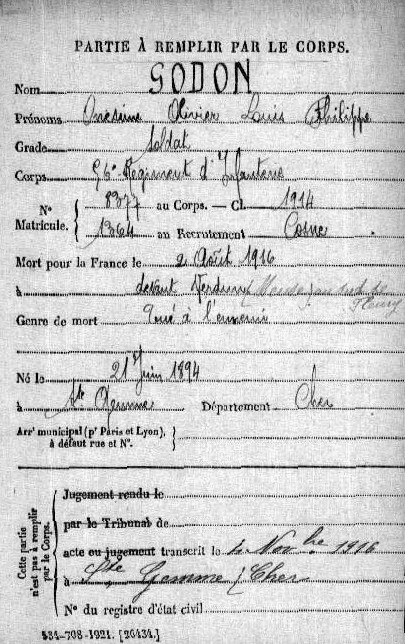 PARTIE À REMPLIR PAR LE CORPS.
Nom GODON
Prénoms Onésime Olivier Louis Philippe
Grade Soldat
Corps 56e Régiment d'Infanterie
N° Matricule. { 8377 au Corps. — Cl. 1914
1364 au Recrutement Cosne
Mort pour la France le 2 Août 1916
à devant Verdun (Meuse) au sud de Fleury
Genre de mort Tué à l'ennemi
Né le 21 Juin 1894
à Ste Gemme Département Cher
Arrt municipal (pr Paris et Lyon), à défaut rue et N°. }
Cette partie n'est pas à remplir par le Corps.
Jugement rendu le
par le Tribunal de
acte ou jugement transcrit le 4 Novbre 1916
à Ste Gemme (Cher
N° du registre d'état civil
534-708-1921. [26434.]